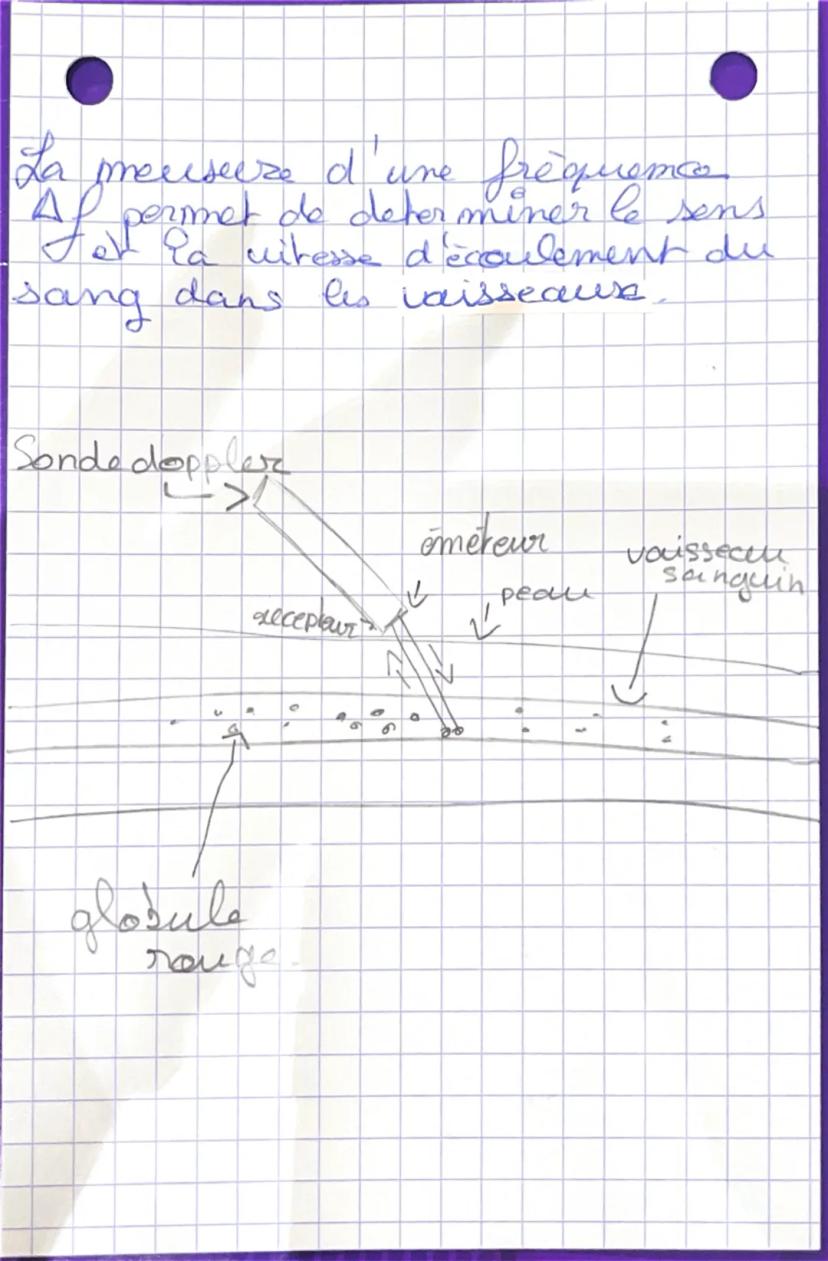 La meusure d'une fréquence
Δf permet de determiner le sens
et la vitesse d'écoulement du
sang dans les vaisseaux.
Sonde doppler
émeteur
vaisseau
sanguin
peau
recepteur
globule
rouge